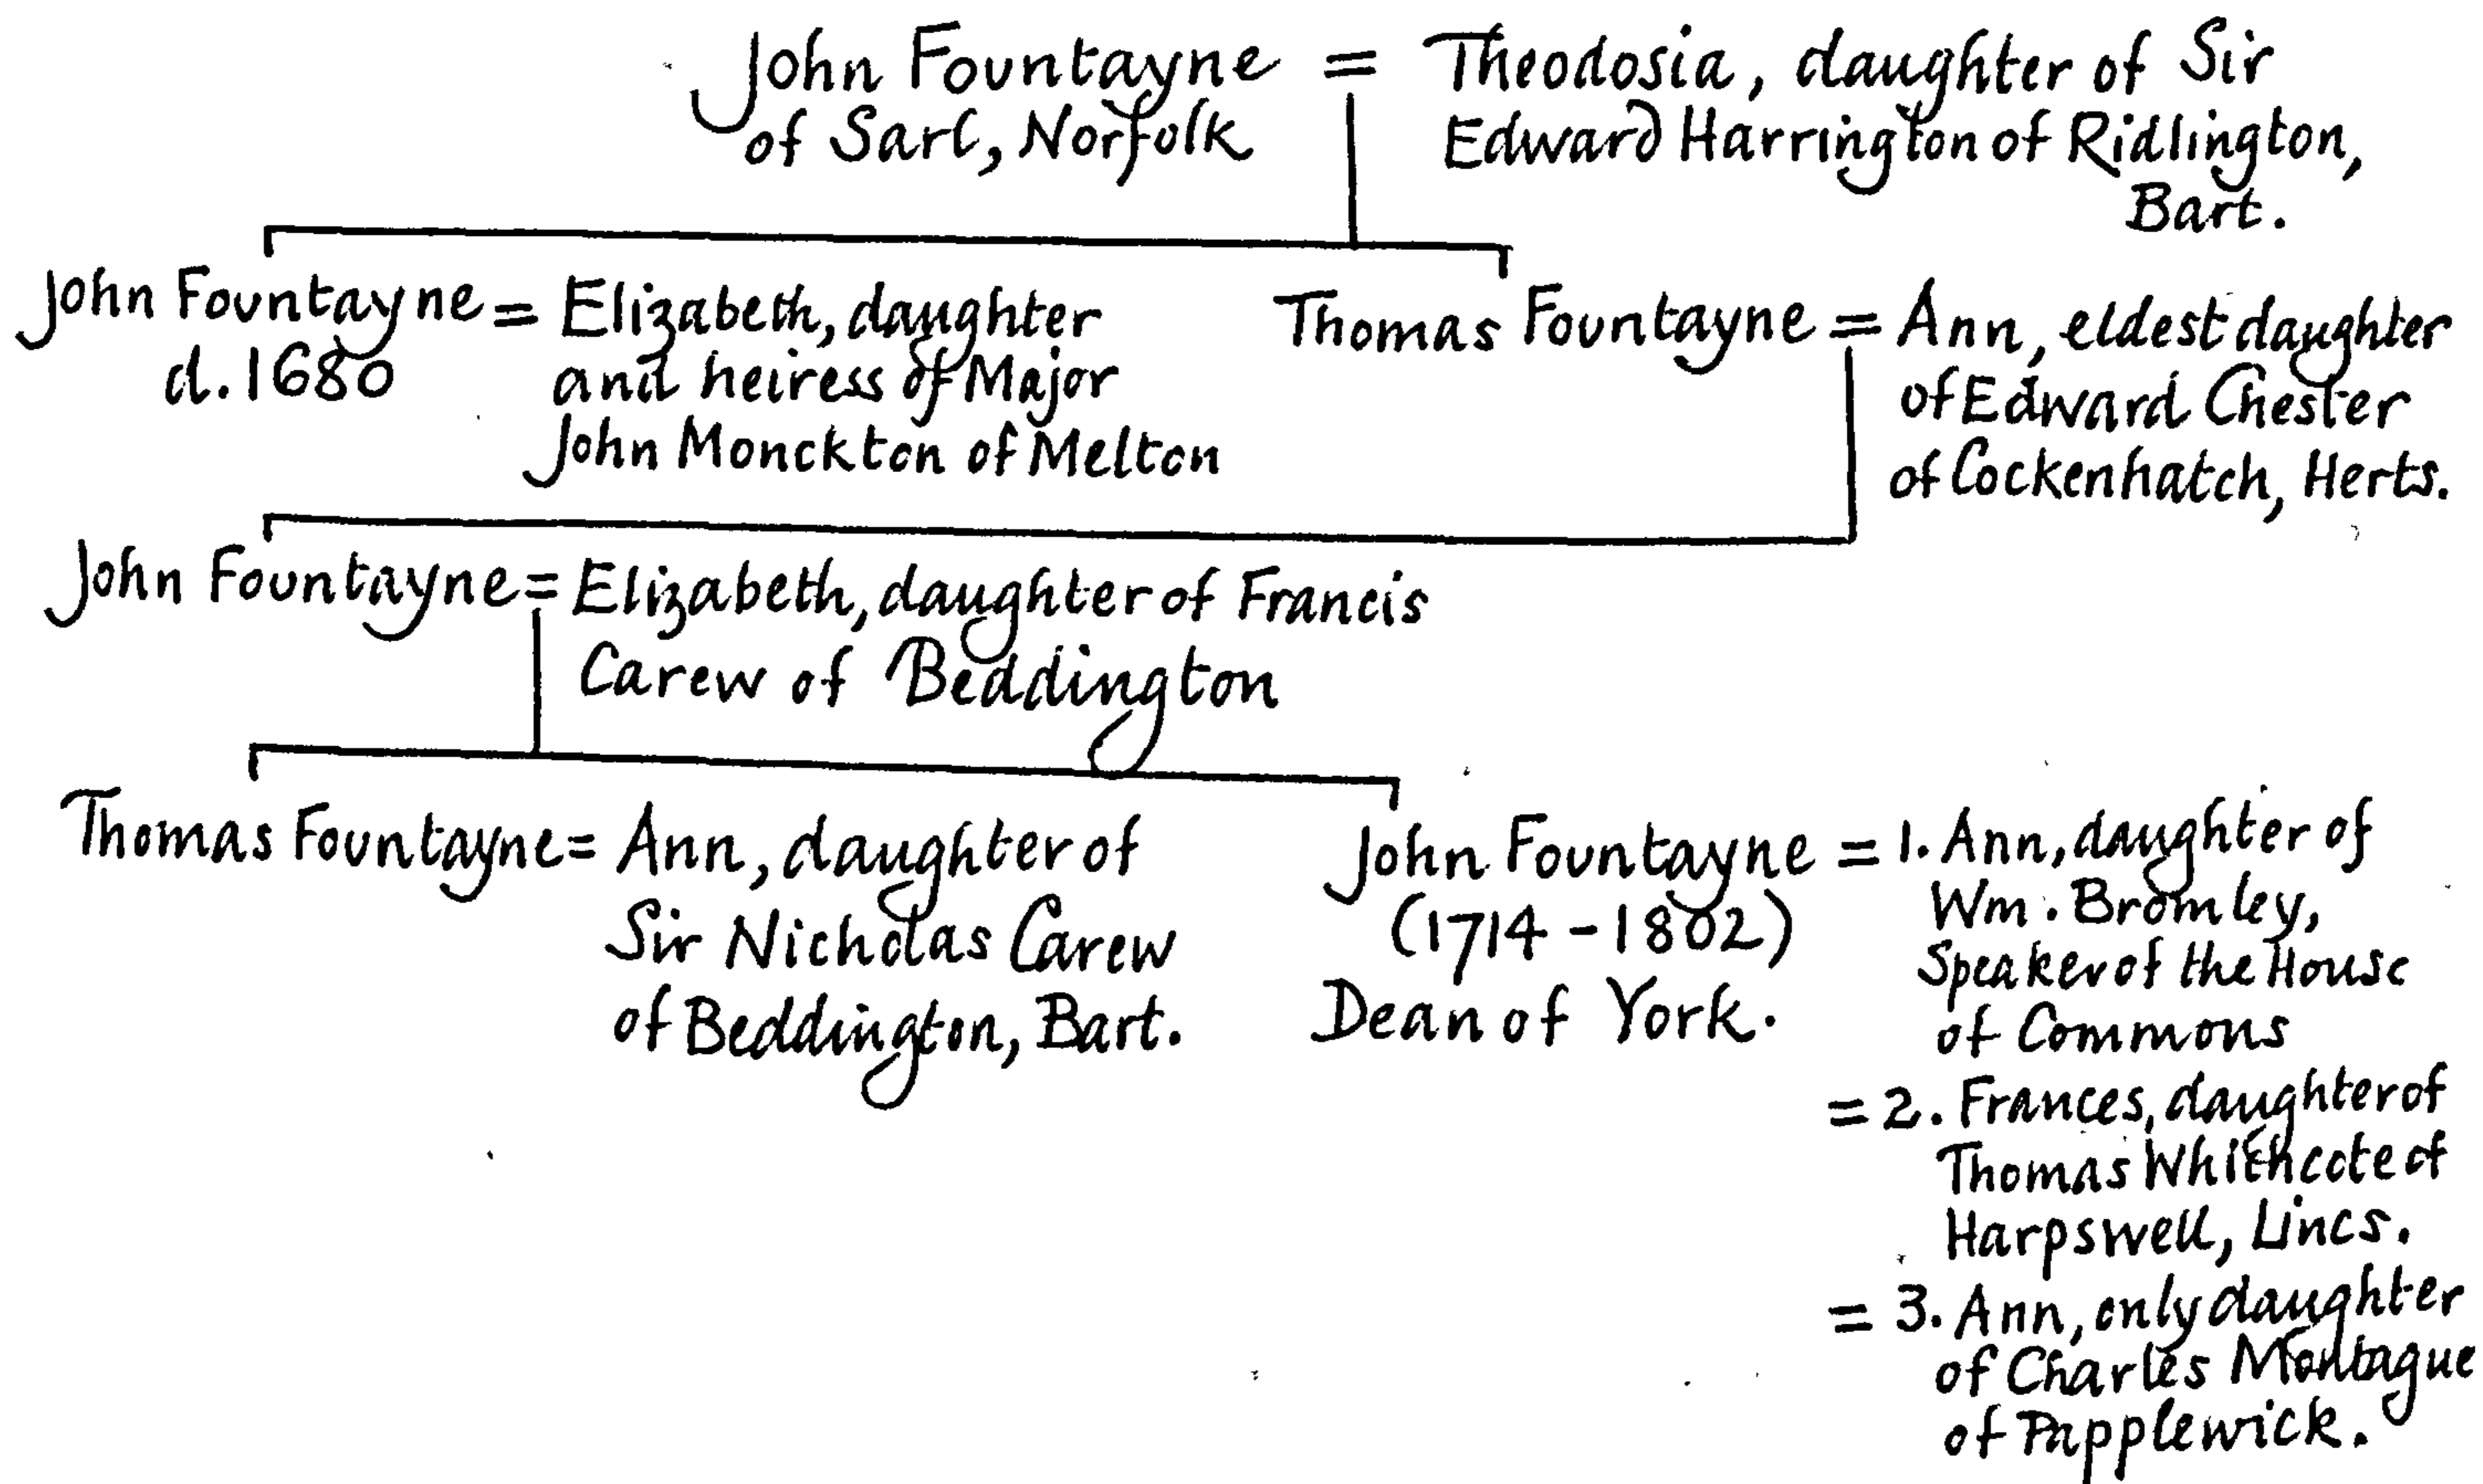 John Fountayne = Theodosia, daughter of Sir
of Sarl, Norfolk Edward Harrington of Ridlington,
Bart.
John Fountayne = Elizabeth, daughter
d. 1680 and heiress of Major
John Monckton of Melton
Thomas Fountayne = Ann, eldest daughter
of Edward Chester
of Cockenhatch, Herts.
John Fountayne = Elizabeth, daughter of Francis
Carew of Beddington
Thomas Fountayne = Ann, daughter of
Sir Nicholas Carew
of Beddington, Bart.
John Fountayne = 1. Ann, daughter of
(1714 - 1802) Wm. Bromley,
Dean of York. Speaker of the House
of Commons
= 2. Frances, daughter of
Thomas Whithcote of
Harpswell, Lincs.
= 3. Ann, only daughter
of Charles Montague
of Papplewick.